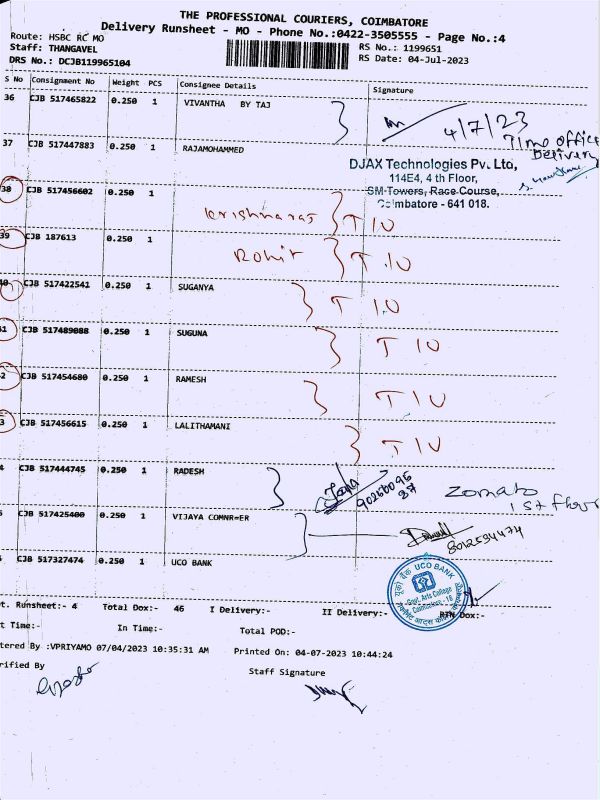 THE PROFESSIONAL COURIERS, COIMBATORE
Delivery Runsheet - MO - Phone No.:0422-3505555 - Page No.:4
Route: HSBC RC MO
Staff: THANGAVEL
DRS No.: DCJB119965104
RS No.: 1199651
RS Date: 04-Jul-2023
S No Consignment No Weight PCS Consignee Details Signature
36 CJB 517465822 0.250 1 VIVANTHA BY TAJ
4/7/23
Time office
Delivery
37 CJB 517447883 0.250 1 RAJAMOHAMMED
DJAX Technologies Pv. Ltd,
114E4, 4 th Floor,
SM Towers, Race Course,
Coimbatore - 641 018.
38 CJB 517456602 0.250 1
Krishnaraj T IU
39 CJB 187613 0.250 1
Rohit T IU
40 CJB 517422541 0.250 1 SUGANYA T IU
41 CJB 517489088 0.250 1 SUGUNA T IU
2 CJB 517454680 0.250 1 RAMESH T IU
3 CJB 517456615 0.250 1 LALITHAMANI T IU
4 CJB 517444745 0.250 1 RADESH
Zomato
1st floor
CJB 517425400 0.250 1 VIJAYA COMNR=ER
8012594474
CJB 517327474 0.250 1 UCO BANK
UCO BANK
Govt. Arts College
Coimbatore - 18
t. Runsheet:- 4 Total Dox:- 46 I Delivery:- II Delivery:- RTN Dox:-
t Time:- In Time:- Total POD:-
tered By :VPRIYAMO 07/04/2023 10:35:31 AM Printed On: 04-07-2023 10:44:24
rified By Staff Signature